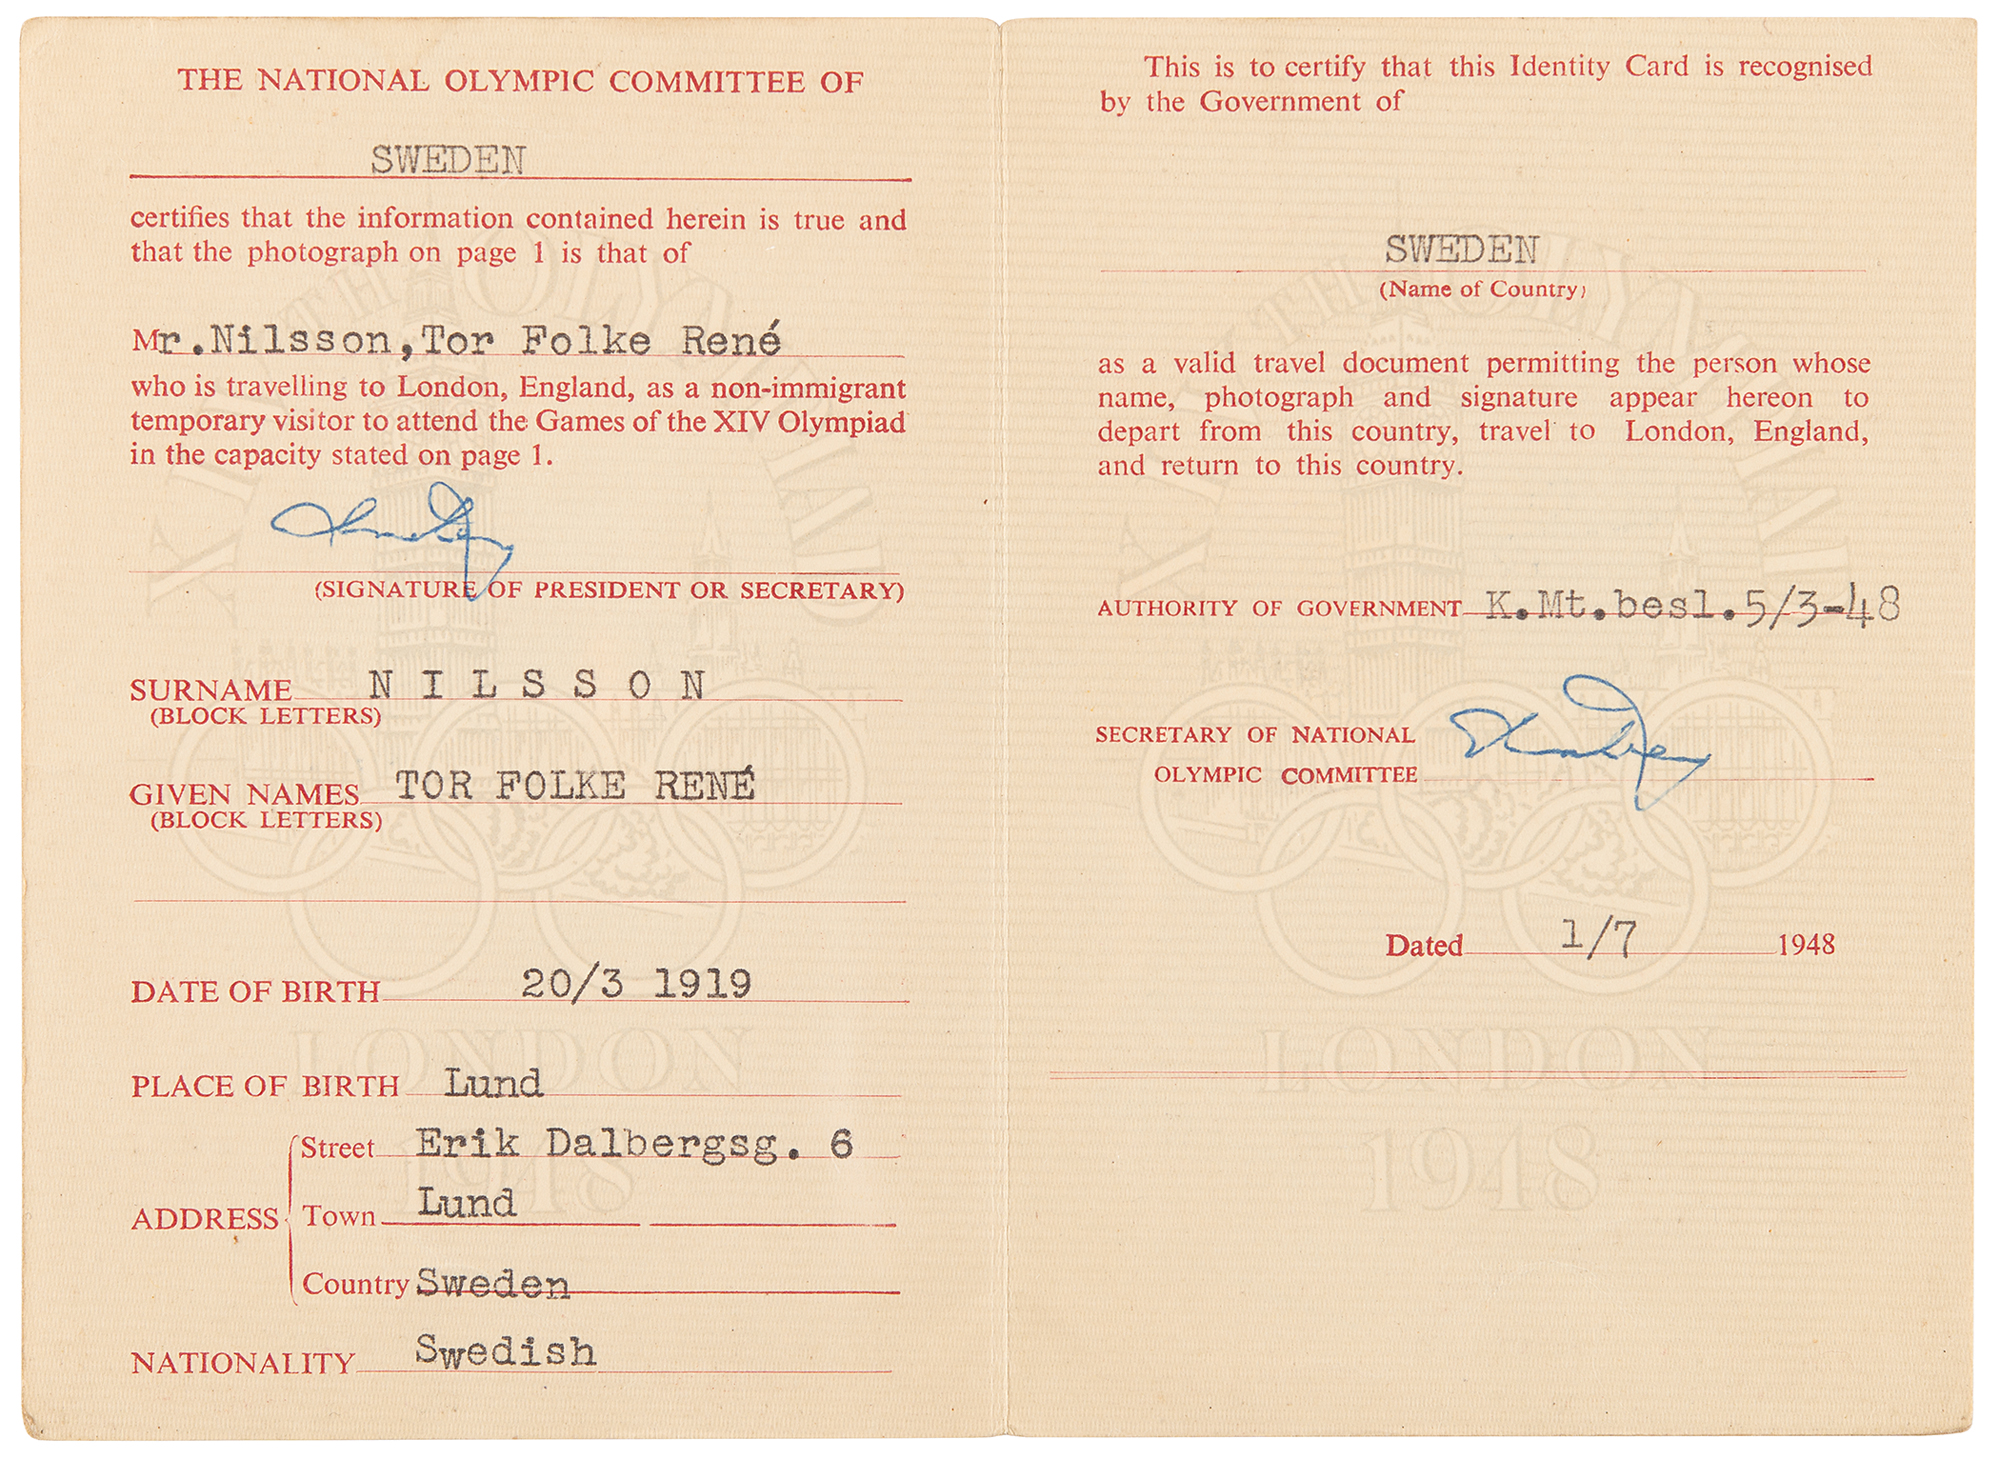 THE NATIONAL OLYMPIC COMMITTEE OF
SWEDEN
certifies that the information contained herein is true and
that the photograph on page 1 is that of
Mr.Nilsson,Tor Folke René
who is travelling to London, England, as a non-immigrant
temporary visitor to attend the Games of the XIV Olympiad
in the capacity stated on page 1.
(SIGNATURE OF PRESIDENT OR SECRETARY)
SURNAME NILSSON
(BLOCK LETTERS)
GIVEN NAMES TOR FOLKE RENÉ
(BLOCK LETTERS)
DATE OF BIRTH 20/3 1919
PLACE OF BIRTH Lund
ADDRESS
Street Erik Dalbergsg. 6
Town Lund
Country Sweden
NATIONALITY Swedish
XIVTH OLYMPIAD
LONDON
1948
This is to certify that this Identity Card is recognised
by the Government of
SWEDEN
(Name of Country)
as a valid travel document permitting the person whose
name, photograph and signature appear hereon to
depart from this country, travel to London, England,
and return to this country.
AUTHORITY OF GOVERNMENT K.Mt.besl.5/3-48
SECRETARY OF NATIONAL
OLYMPIC COMMITTEE
Dated 1/7 1948
XIVTH OLYMPIAD
LONDON
1948